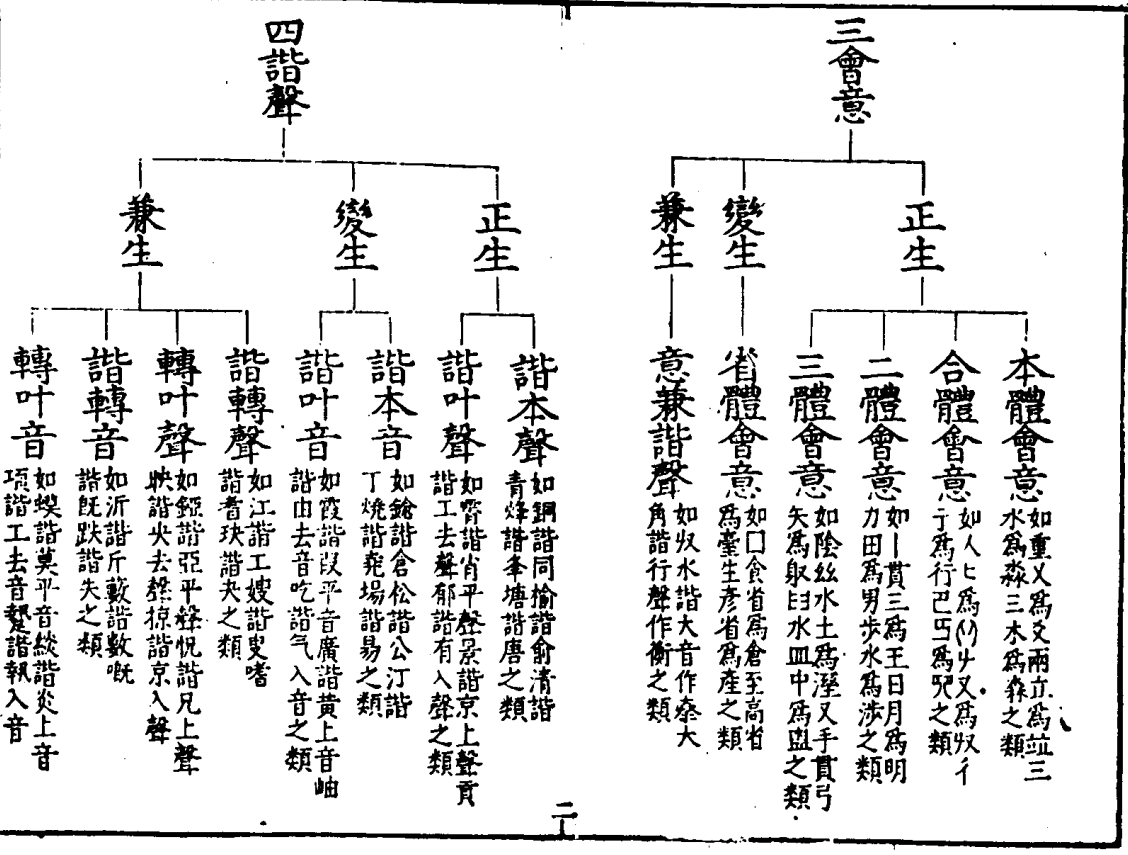 三會意
正生
本體會意
如重乂為爻兩立為竝三
水為淼三木為森之類
合體會意
如人匕為
又為収彳
亍為行
為
之類
二體會意
如丨貫三為王日月為明
力田為男步水為涉之類
三體會意
如陰絲水土為溼又手貫弓
矢為躲臼水皿中為盥之類
變生
省體會意
如囗食省為倉至高省
為臺生彥省為產之類
兼生
意兼諧聲
如収水諧大音作泰大
角諧行聲作衡之類
四諧聲
正生
諧本聲
如銅諧同榆諧俞清諧
青烽諧夆塘諧唐之類
諧叶聲
如霄諧肖平聲景諧京上聲貢
諧工去聲郁諧有入聲之類
變生
諧本音
如鎗諧倉松諧公汀諧
丁燒諧堯場諧昜之類
諧叶音
如霞諧叚平音廣諧黃上音岫
諧由去音吃諧气入音之類
兼生
諧轉聲
如江諧工嫂諧叟嗜
諧耆玦諧夬之類
轉叶聲
如錏諧亞平聲怳諧兄上聲
映諧央去聲掠諧京入聲
諧轉音
如沂諧斤藪諧數嘅
諧既跌諧失之類
轉叶音
如蟆諧莫平音緂諧炎上音
項諧工去音
諧執入音
二